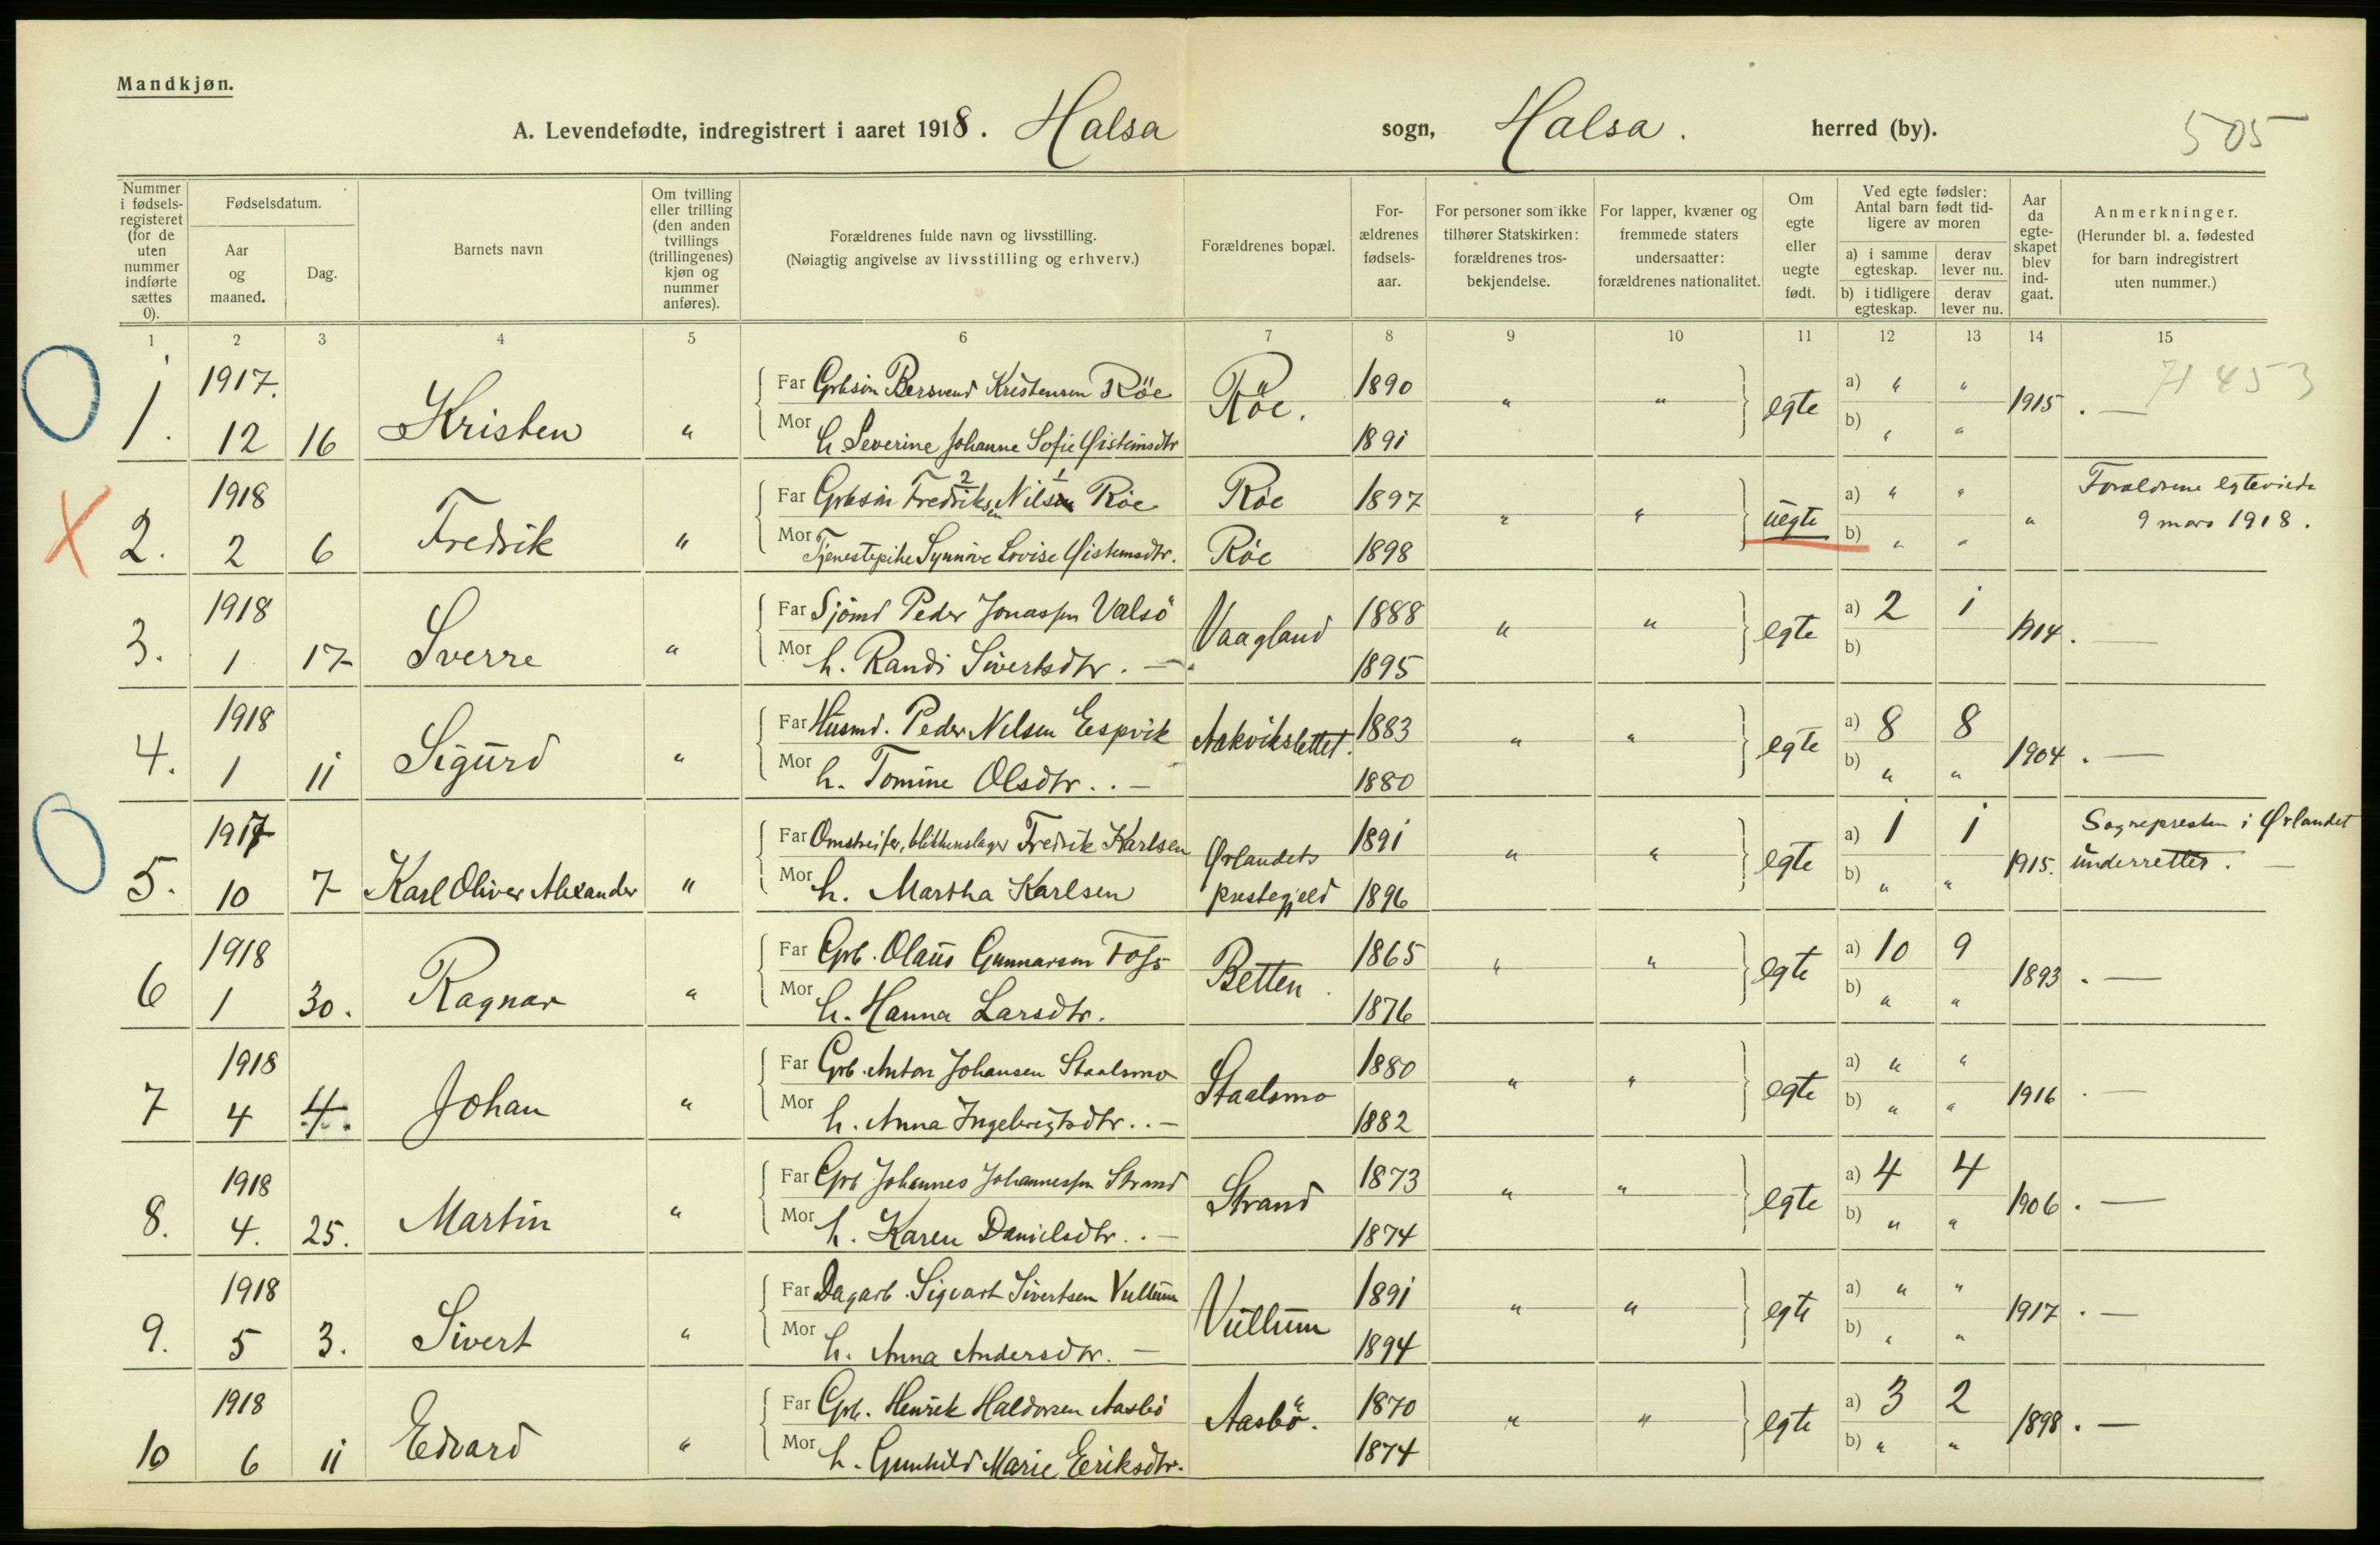 Mandkjøn.
A. Levendefødte, indregistrert i aaret 1918. Halsa sogn, Halsa. herred (by). 505
Nummer i fødsels-registeret (for de uten nummer indførte sættes 0).
Fødselsdatum.
Aar og maaned.
Dag.
Barnets navn
Om tvilling eller trilling (den anden tvillings (trillingenes) kjøn og nummer anføres).
Forældrenes fulde navn og livsstilling.
(Nøiagtig angivelse av livsstilling og erhverv.)
Forældrenes bopæl.
For-ældrenes fødsels-aar.
For personer som ikke tilhører Statskirken: forældrenes tros-bekjendelse.
For lapper, kvæner og fremmede staters undersaatter: forældrenes nationalitet.
Om egte eller uegte født.
Ved egte fødsler: Antal barn født tid-ligere av moren
a) i samme egteskap.
derav lever nu.
b) i tidligere egteskap.
derav lever nu.
Aar da egte-skapet blev ind-gaat.
Anmerkninger.
(Herunder bl. a. fødested for barn indregistrert uten nummer.)
1 2 3 4 5 6 7 8 9 10 11 12 13 14 15
1917. Far Grbsøn Bersvend Kristensen Röe Röe. 1890 a) " " 71453
1. 12 16 Kristen " Mor h Severine Johanne Sofie Øisteinsdtr 1891 " " egte b) " " 1915. —
1918 Far Grbsøn Fredriksen 2 Nilsen 1 Röe Röe 1897 a) " " Forældrene egteviede
2. 2 6 Fredrik " Mor Tjenestepike Synnöve Lovise Øisteinsdtr. Röe 1898 " " uegte b) " " " 9 mars 1918.
1918 Far Sjömd Peder Jonassen Valsö Vaagland 1888 a) 2 1
3. 1 17 Sverre " Mor h. Randi Sivertsdtr. — 1895 " " egte b) 1914. —
1918 Far Husmd. Peder Nilsen Eespvik Aakvikslettet. 1883 a) 8 8
4. 1 11 Sigurd " Mor h. Tomine Olsdtr. . — 1880 " " egte b) " " 1904. —
1917 Far Omstreifer, blikkenslager Fredrik Karlsen Ørlandets 1891 a) 1 1 Sognepresten i Ørlandet
5. 10 7 Karl Oliver Alexander " Mor h. Martha Karlsen prestegjeld 1896 " " egte b) " " 1915. underrettet. —
1918 Far Grb. Olaus Gunnarsen Foss Betten 1865 a) 10 9
6 1 30. Ragnar " Mor h. Hanna Larsdtr. 1876 " " egte b) " " 1893. —
1918 Far Grb. Anton Johansen Staalsmo Staalsmo 1880 a) " "
7 4 4. Johan " Mor h. Anna Ingebrigtsdtr. . — 1882 " " egte b) " " 1916. —
1918 Far Grb Johannes Johannessen Strand Strand 1873 a) 4 4
8. 4. 25. Martin " Mor h. Karen Danielsdtr. . — 1874 " " egte b) " " 1906. —
1918 Far Dagarb. Sigvart Sivertsen Vullum Vullum 1891 a) " "
9. 5 3. Sivert " Mor h. Anna Andersdtr. — 1894 " " egte b) " " 1917. —
1918 Far Grb. Henrik Haldorsen Aasbö Aasbö. 1870 a) 3 2
10 6 11 Edvard " Mor h. Gunhild Marie Eriksdtr. 1874 " " egte b) " " 1898. —